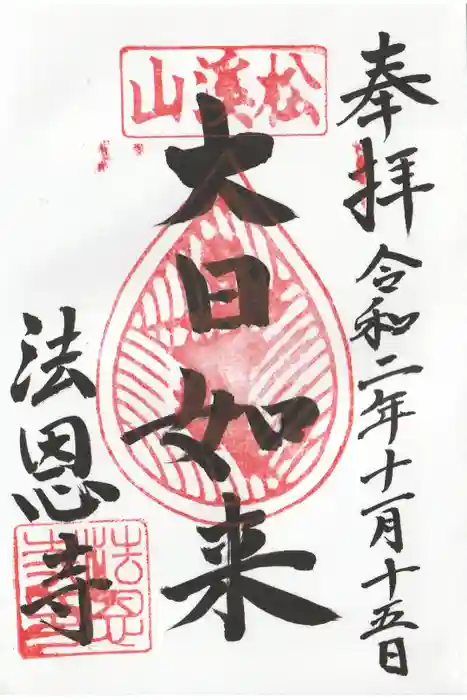 奉拝 令和二年十一月十五日
松溪山
大日如来
法恩寺
法恩寺